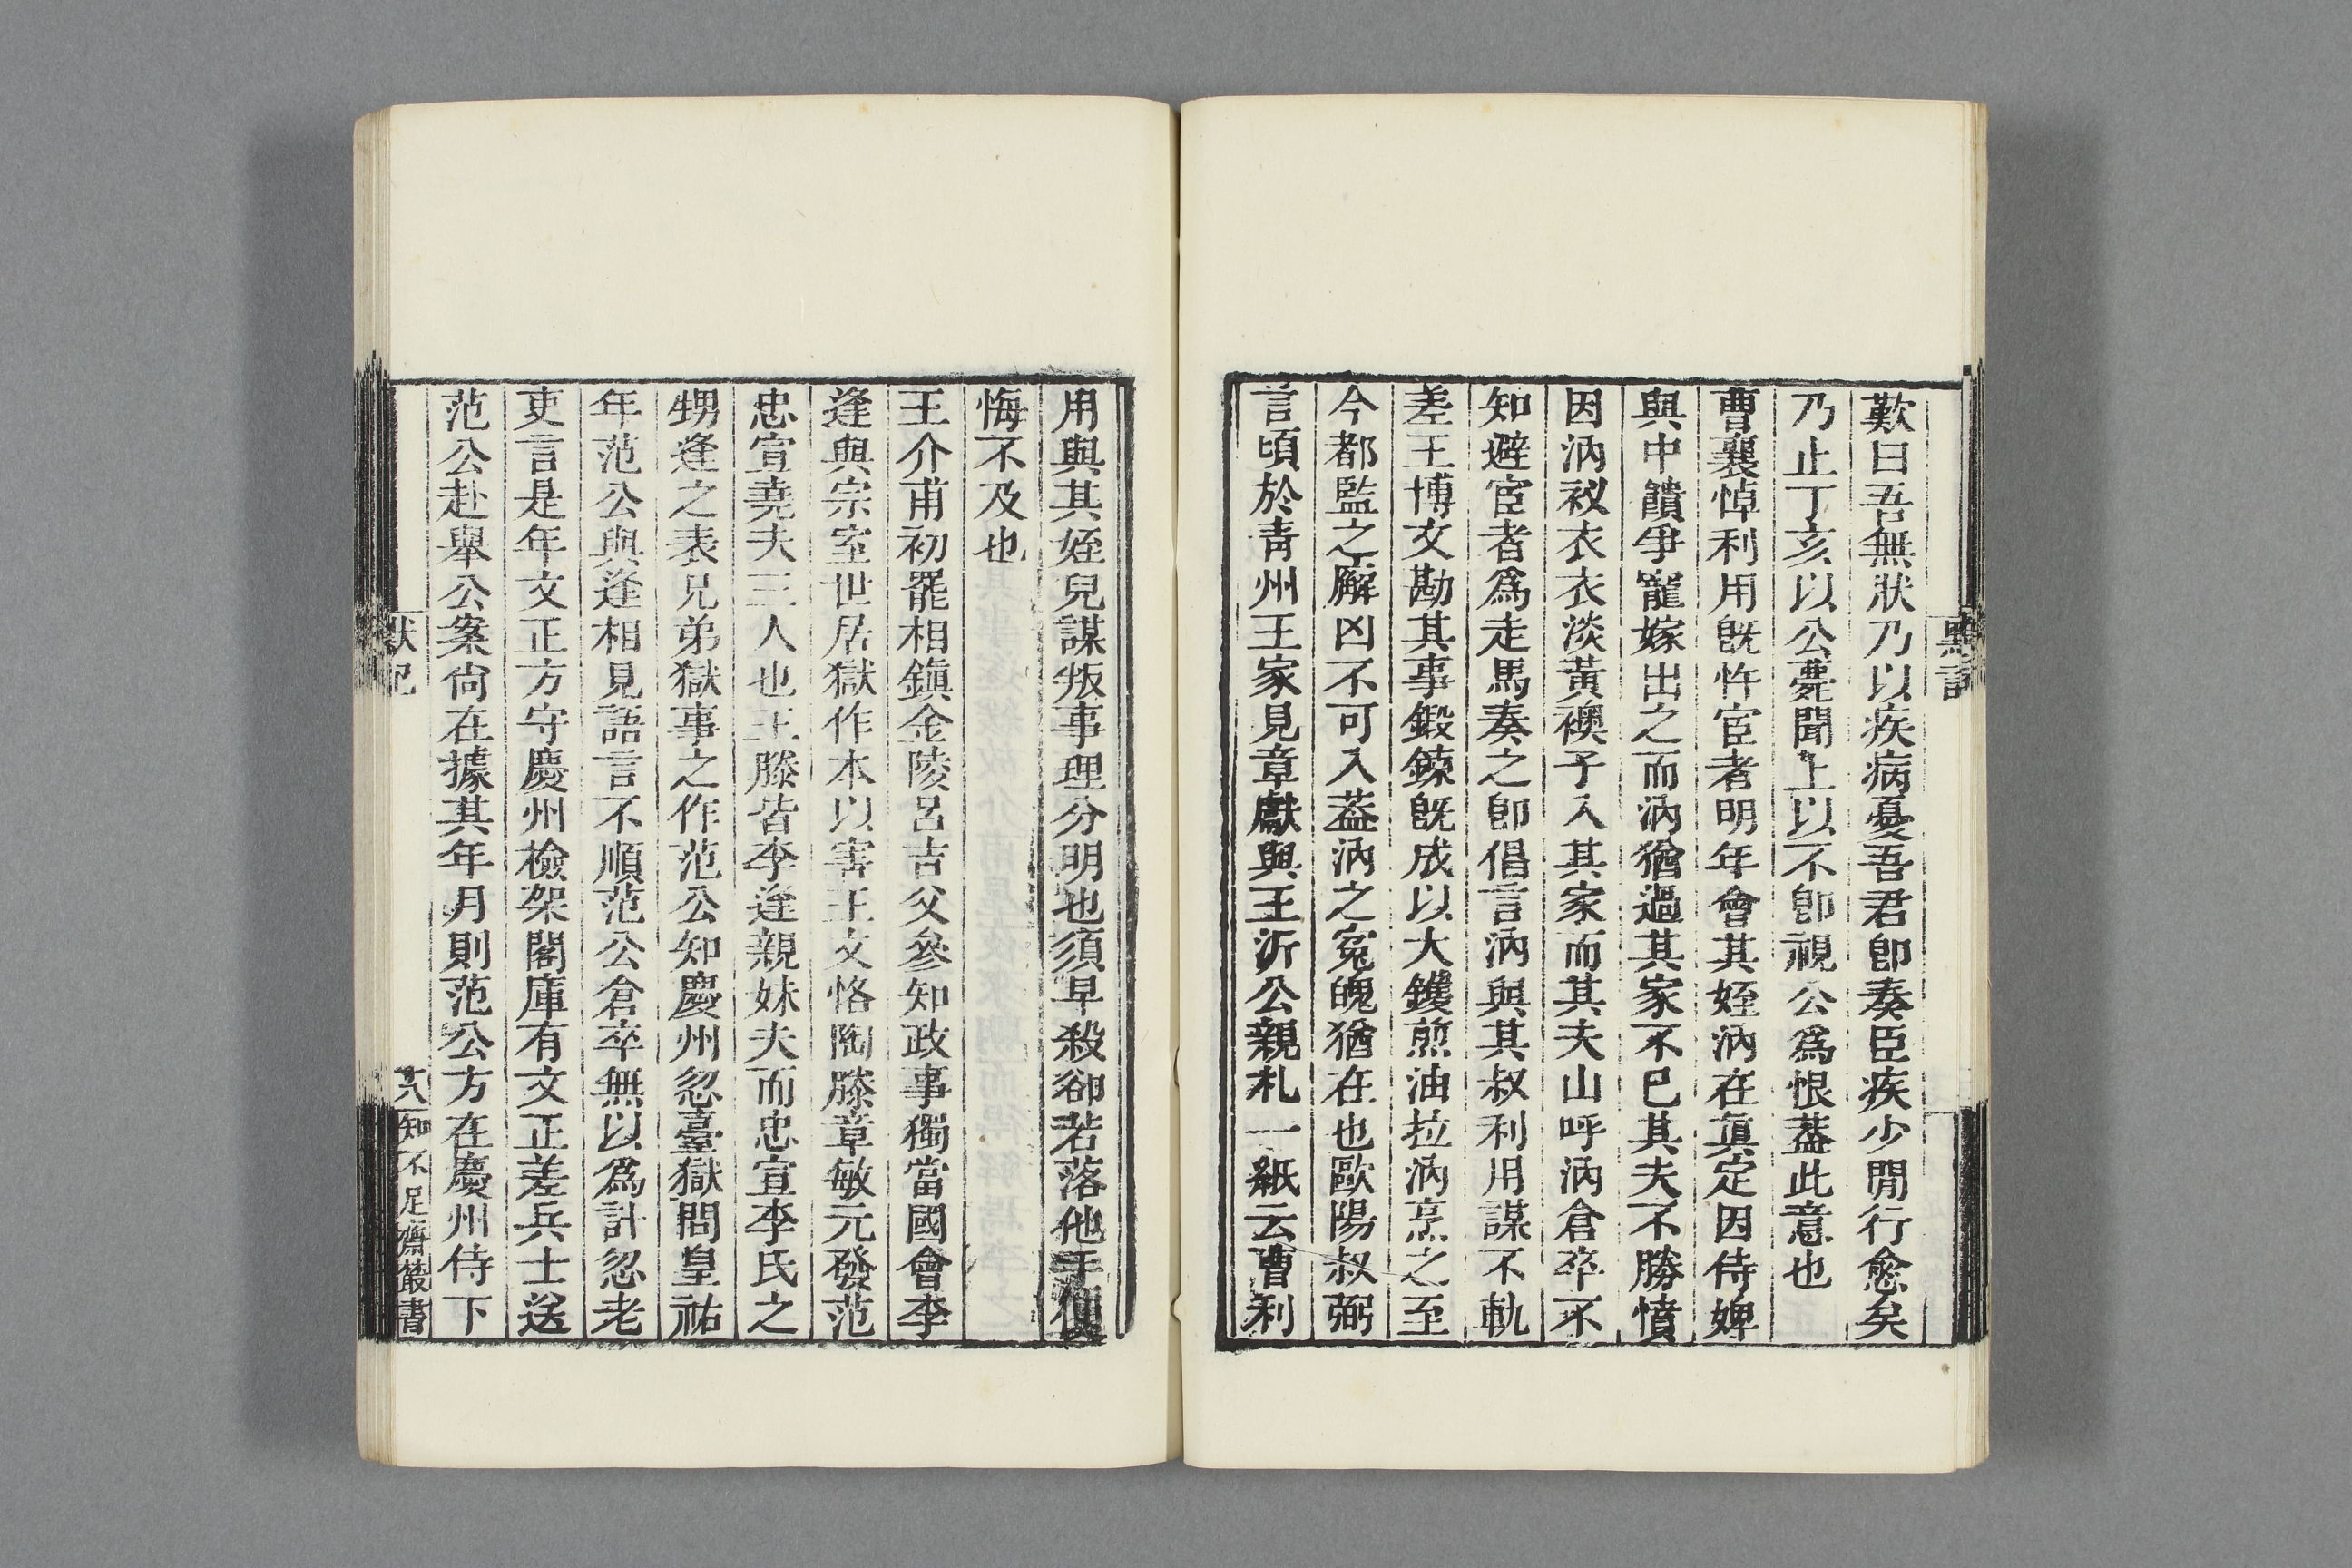 歎曰吾無狀乃以疾病憂吾君卽奏臣疾少閒行愈矣
乃止丁亥以公薨聞上以不卽視公爲恨葢此意也
曹襄悼利用旣忤宦者明年會其姪汭在眞定因侍婢
與中饋爭寵嫁出之而汭猶過其家不巳其夫不勝憤
因汭衩衣衣淡黃襖子入其家而其夫山呼汭倉卒不
知避宦者爲走馬奏之卽倡言汭與其叔利用謀不軌
差王博文勘其事鍛鍊旣成以大鑊煎油拉汭烹之至
今都監之廨凶不可入葢汭之寃魄猶在也歐陽叔弼
言頃於靑州王家見章獻與王沂公親札一紙云曹利
用與其姪兒謀叛事理分明也須早殺卻若落他手便
悔不及也
王介甫初罷相鎭金陵呂吉父參知政事獨當國會李
逢與宗室世居獄作本以害王文恪陶滕章敏元發范
忠宣堯夫三人也王滕皆李逢親妹夫而忠宣李氏之
甥逢之表兄弟獄事之作范公知慶州忽臺獄問皇祐
年范公與逢相見語言不順范公倉卒無以爲計忽老
吏言是年文正方守慶州檢架閣庫有文正差兵士送
范公赴舉公案尙在據其年月則范公方在慶州侍下
默記
六
知不足齋叢書